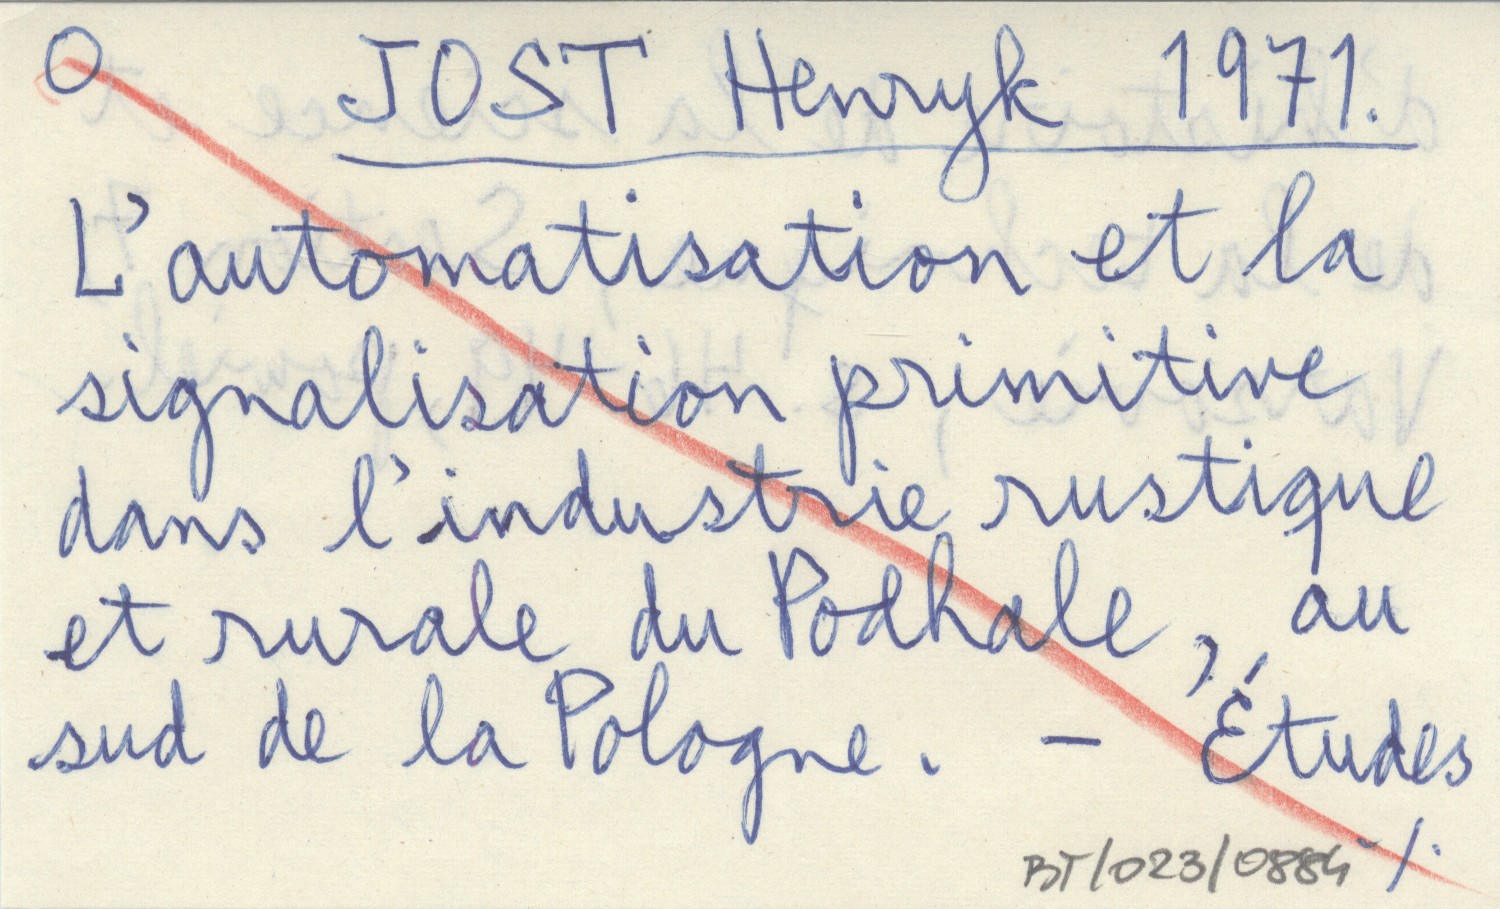 O JOST Henryk 1971.
L'automatisation et la
signalisation primitive
dans l'industrie rustique
et rurale du Podhale, au
sud de la Pologne. - Études
BT/023/0884 ·/.